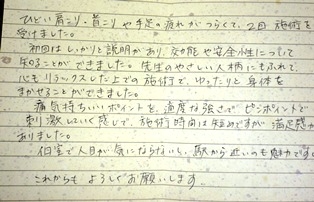 ひどい肩こり・首こりや手足の疲れがつらくて、2回施術を
受けました。
初回はしっかりと説明があり、効能や安全性について
知ることができました。先生のやさしい人柄にもふれて、
心もリラックスした上での施術で、ゆったりと身体を
まかせることができました。
痛気持ちいいポイントを、適度な強さでピンポイントで
刺激していく感じで、施術時間は短めですが満足感が
ありました。
個室で人目が気にならないし、駅から近いのも魅力です。
これからもよろしくお願いします